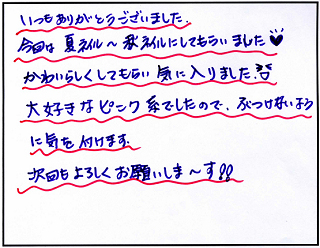 いつもありがとうございました。
今回は夏ネイル〜秋ネイルにしてもらいました♥
かわいらしくしてもらい気に入りました。
大好きなピンク系でしたので、ぶつけないよう
に気を付けます。
次回もよろしくお願いしま〜す!!